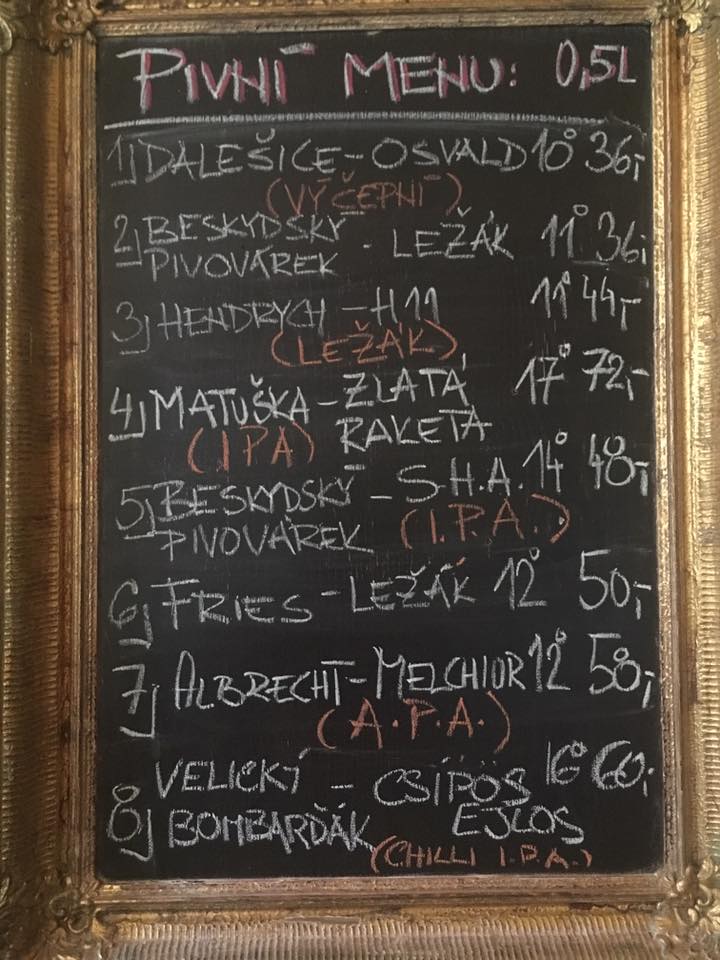 PIVNÍ MENU: 0,5L
1) DALEŠICE - OSVALD 10° 36,-
(VÝČEPNÍ)
2) BESKYDSKÝ PIVOVÁREK - LEŽÁK 11° 36,-
3) HENDRYCH - H11 11° 44,-
(LEŽÁK)
4) MATUŠKA - ZLATÁ RAKETA 17° 72,-
(IPA)
5) BESKYDSKÝ PIVOVÁREK - S.H.A. 14° 48,-
(I.P.A.)
6) FRIES - LEŽÁK 12° 50,-
7) ALBRECHT - MELCHIOR 12° 58,-
(A.P.A.)
8) VELICKÝ BOMBARĎÁK - CSÍPÖS EJLOS 16° 60,-
(CHILLI I.P.A.)